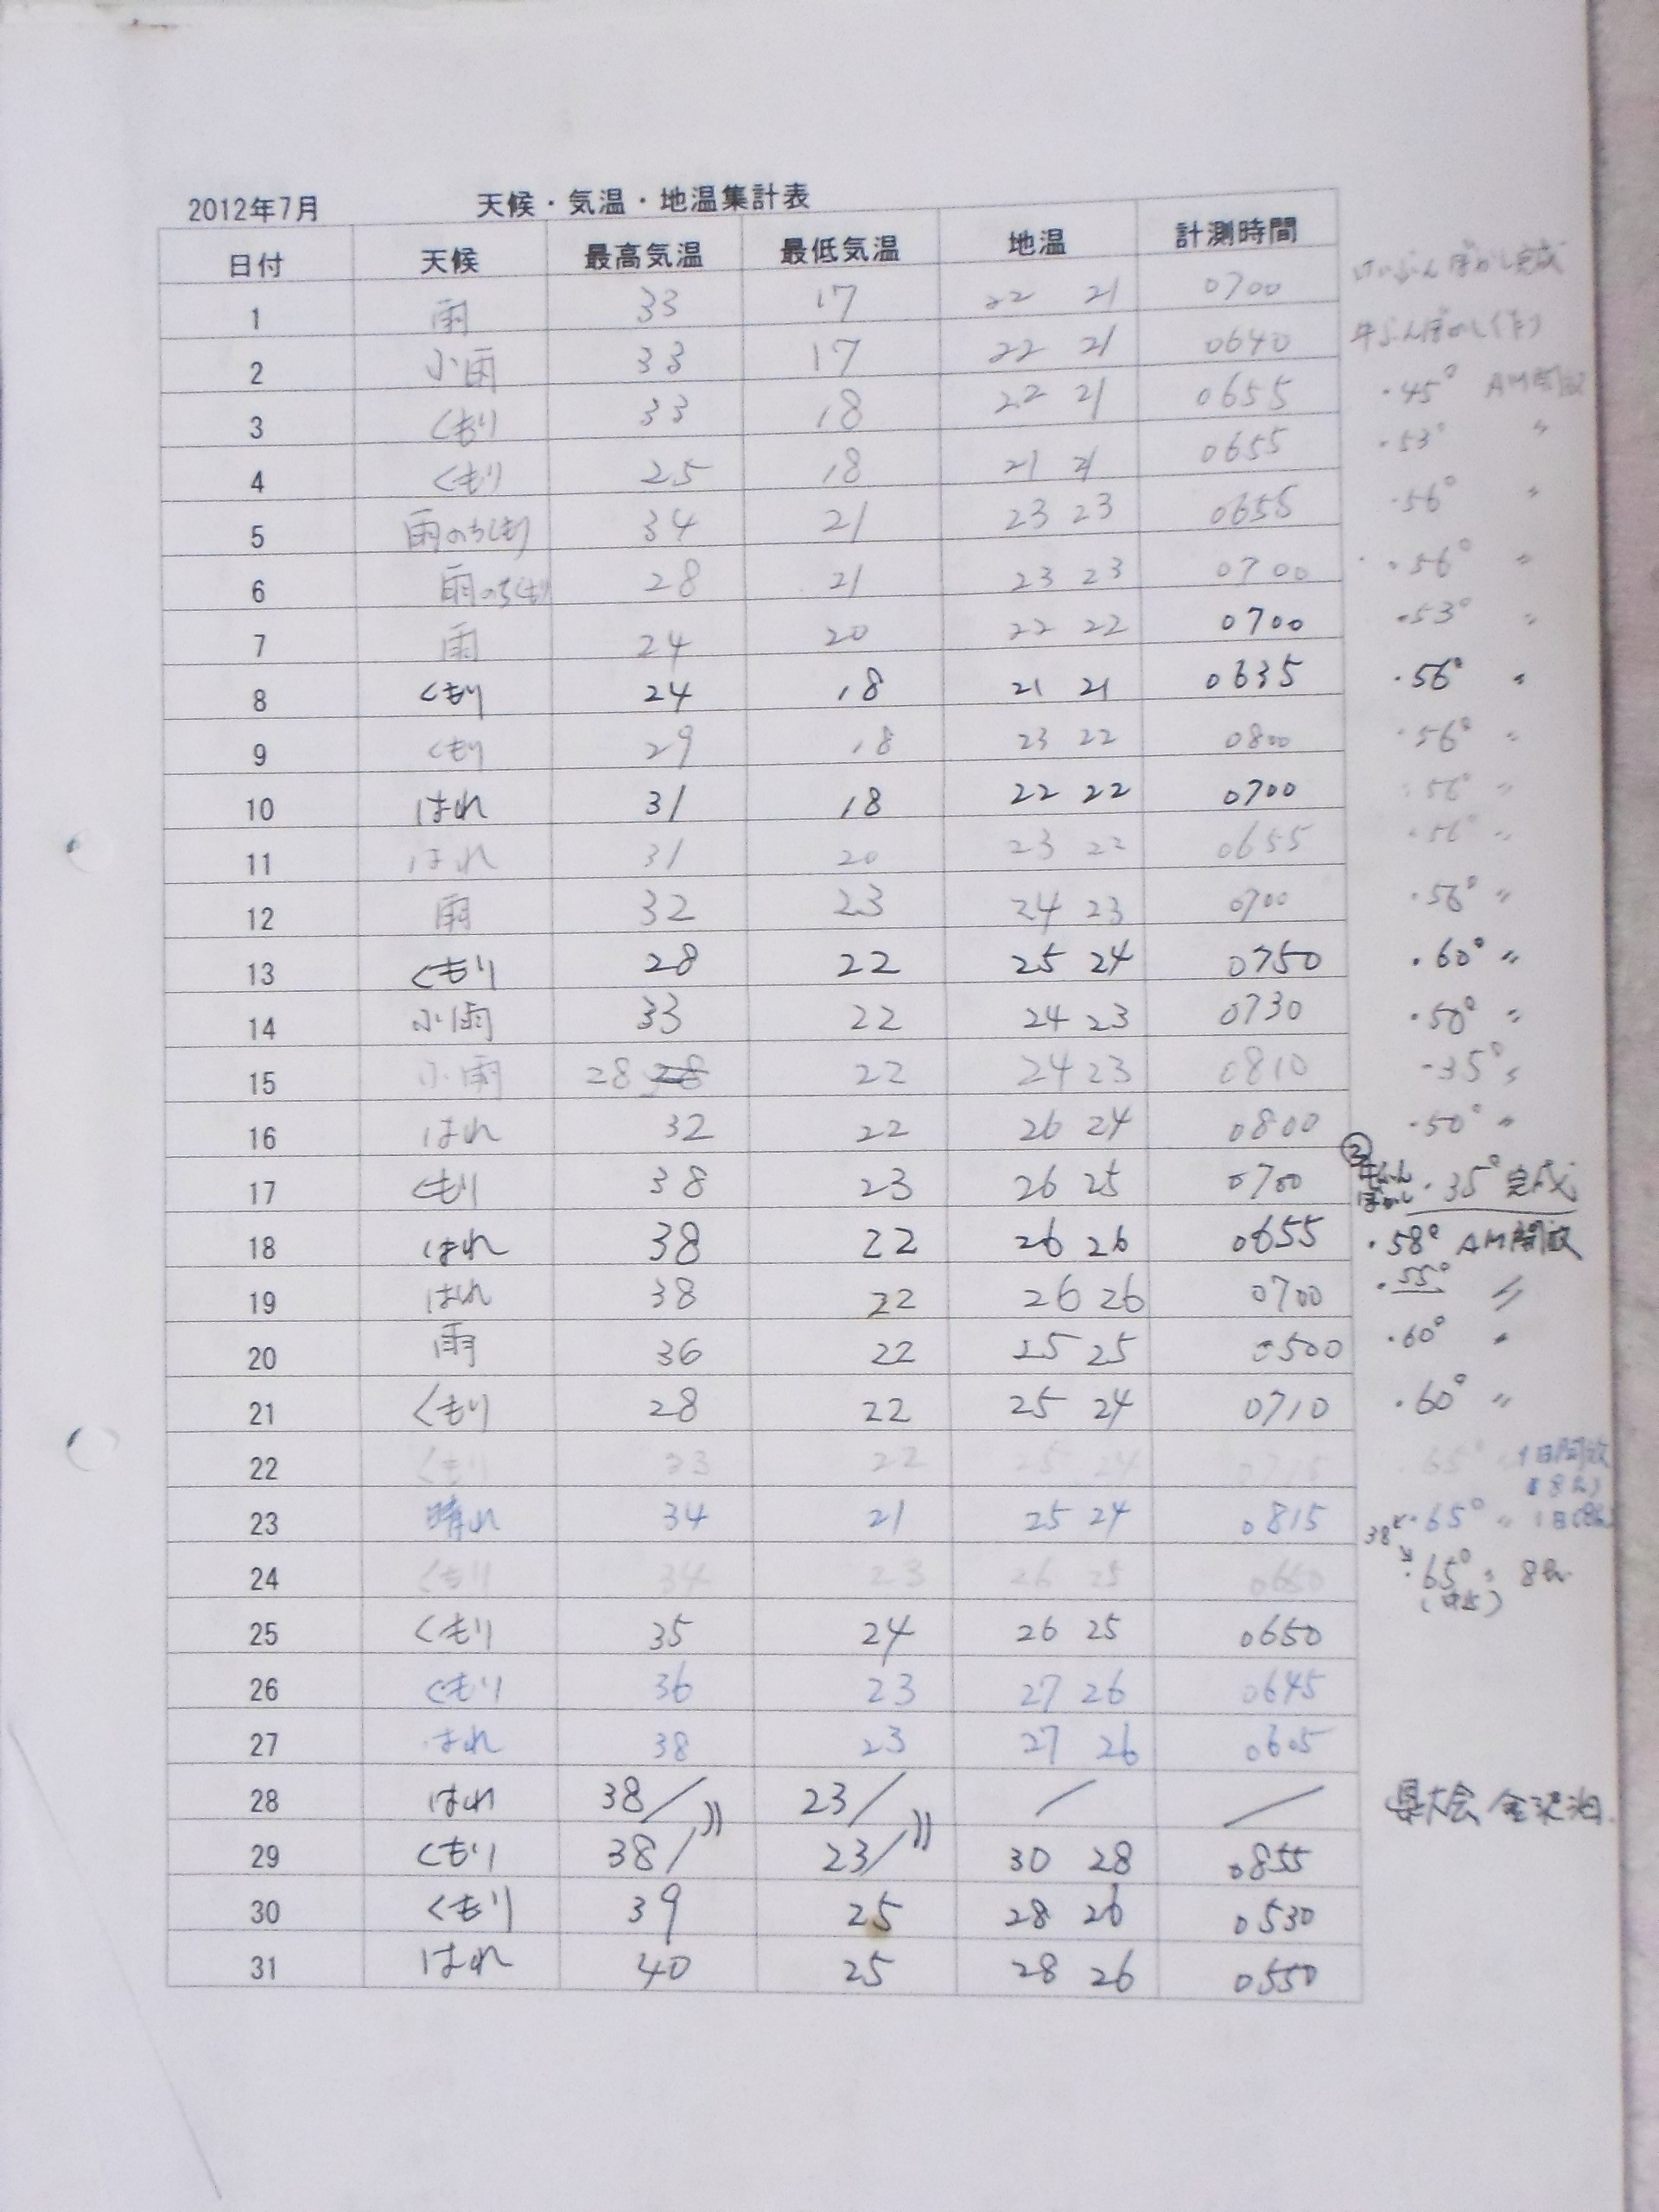 2012年7月 天候・気温・地温集計表
日付 天候 最高気温 最低気温 地温 計測時間
けいふんぼかし完成
1 雨 33 17 22 21 0700
牛ふんぼかし作り
2 小雨 33 17 22 21 0640
3 くもり 33 18 22 21 0655 ・45° AM開放
4 くもり 25 18 21 21 0655 ・53° 〃
5 雨のちくもり 34 21 23 23 0655 ・56° 〃
6 雨のちくもり 28 21 23 23 0700 ・56° 〃
7 雨 24 20 22 22 0700 ・53° 〃
8 くもり 24 18 21 21 0635 ・56° 〃
9 くもり 29 18 23 22 0800 ・56° 〃
10 はれ 31 18 22 22 0700 ・56° 〃
11 はれ 31 20 23 22 0655 ・56° 〃
12 雨 32 23 24 23 0700 ・56° 〃
13 くもり 28 22 25 24 0750 ・60° 〃
14 小雨 33 22 24 23 0730 ・50° 〃
15 小雨 28 28 22 24 23 0810 ・35° 〃
16 はれ 32 22 26 24 0800 ・50° 〃
17 くもり 38 23 26 25 0700 ② 牛ふんぼかし ・35° 完成
18 はれ 38 22 26 26 0655 ・58° AM開放
19 はれ 38 22 26 26 0700 ・55° 〃
20 雨 36 22 25 25 0500 ・60° 〃
21 くもり 28 22 25 24 0710 ・60° 〃
22 くもり 33 22 25 24 0715 ・65° 〃 1日開放
(8h)
23 晴れ 34 21 25 24 0815 38 ・65° 〃 1日(8h)
24 くもり 34 23 26 25 0650 ・65° 〃 8h
25 くもり 35 24 26 25 0650
26 くもり 36 23 27 26 0645
27 はれ 38 23 27 26 0605
28 はれ 38/ 23/ / / 県大会 金沢泊.
29 くもり 38/ 23/ 30 28 0855
30 くもり 39 25 28 26 0530
31 はれ 40 25 28 26 0550